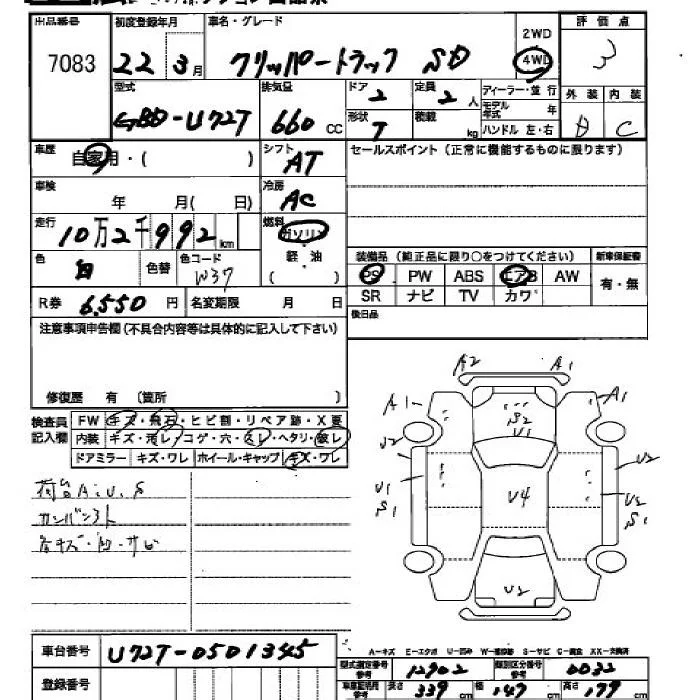 出品番号 初度登録年月 車名・グレード 評価点
7083 22 3月 クリッパートラック SD 2WD 4WD 3
型式 排気量 ドア 定員 ディーラー・並行 外装 内装
GBD-U72T 660 CC 2 2 人 モデル年式 年
形状 T 積載 kg ハンドル 左・右 D C
車歴 自家用・( ) シフト AT セールスポイント(正常に機能するものに限ります)
車検 年 月( 日) 冷房 AC
走行 10万2千992 km 燃料 ガソリン
色 白 色替 色コード W37 軽油 ( )
装備品(純正品に限り○をつけてください) 新車保証書
PS PW ABS エアB AW 有・無
SR ナビ TV カワ
R券 6,550 円 名変期限 月 日 後日品
注意事項申告欄(不具合内容等は具体的に記入して下さい)
修復歴 有 (箇所 )
検査員記入欄 FW キズ・飛石・ヒビ割・リペア跡・X要
内装 キズ・汚レ・コゲ・穴・スレ・ヘタリ・破レ
ドアミラー キズ・ワレ ホイール・キャップ キズ・ワレ
荷台A.U.S
カンバン外
各キズ・凹・サビ
A2 A1
A1 A1
S2
U1
U2 U2
U1 U4 U2
S1 S1
U2
A-キズ E-エクボ U-凹み W-補修跡 S-サビ C-腐食 XX-交換済
車台番号 U72T-0501345
型式指定番号 参考 12902 類別区分番号 参考 0032
登録番号 車庫証明用 参考 長さ 339 cm 幅 147 cm 高さ 179 cm